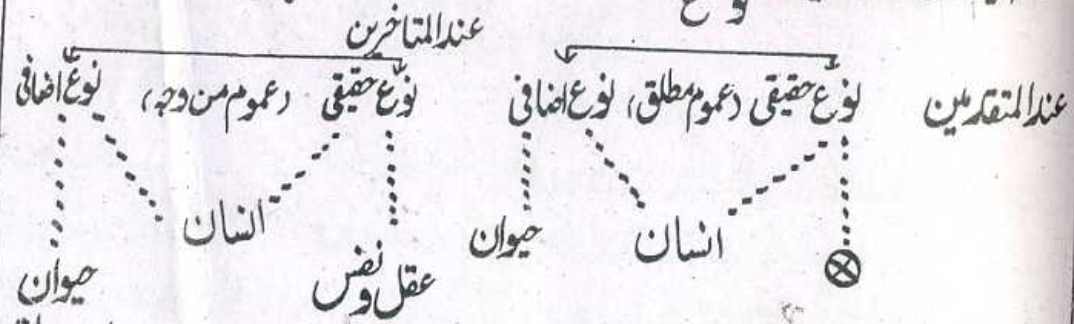 نوع
عندالمتاخرین
عندالمتقدمین نوع حقیقی (عموم مطلق) نوع اضافی نوع حقیقی (عموم من وجہ) نوع اضافی
انسان حیوان انسان
عقل ونفس حیوان